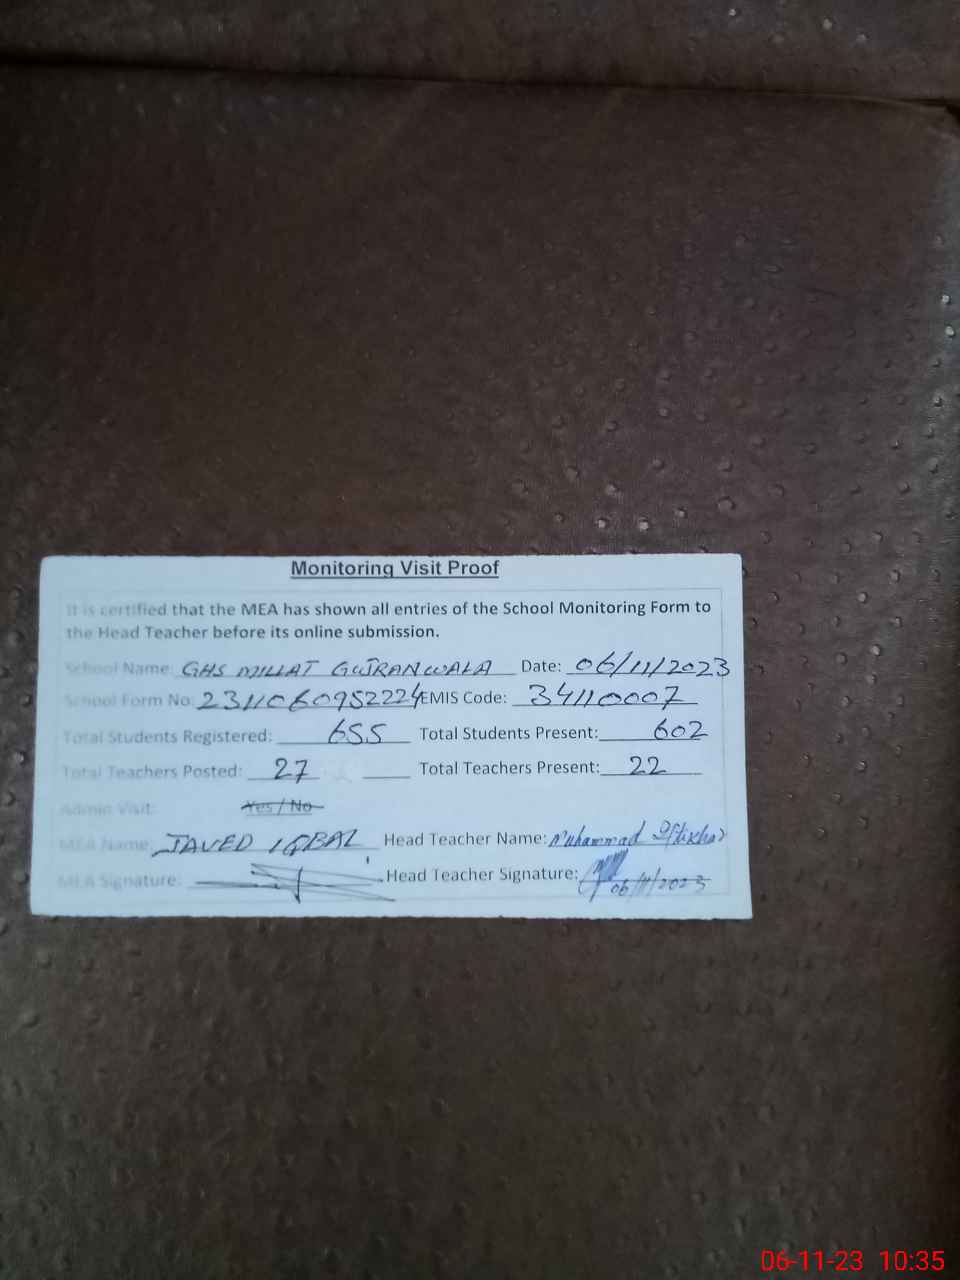 Monitoring Visit Proof
It is certified that the MEA has shown all entries of the School Monitoring Form to
the Head Teacher before its online submission.
School Name: GHS MILLAT GUJRANWALA Date: 06/11/2023
School Form No: 2311060952224 EMIS Code: 34110007
Total Students Registered: 655 Total Students Present: 602
Total Teachers Posted: 27 Total Teachers Present: 22
Admin Visit: Yes / No
MEA Name: JAVED IQBAL Head Teacher Name: Muhammad Iftikhar
MEA Signature: Head Teacher Signature: 06/11/2023
06-11-23 10:35